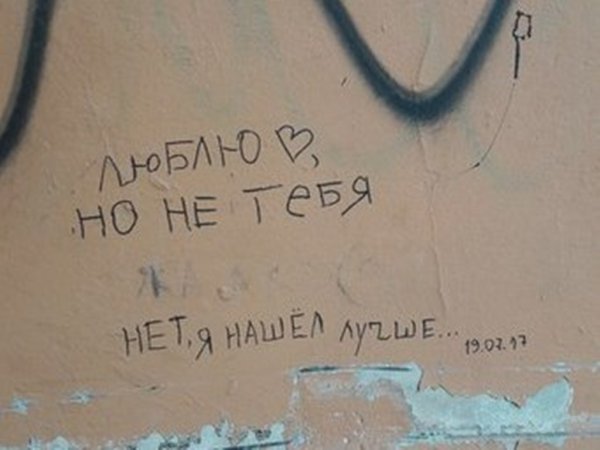 ЛЮБЛЮ ♡,
НО НЕ ТеБЯ
НЕТ, я НАШЁЛ ЛУЧШЕ...
19.07.17